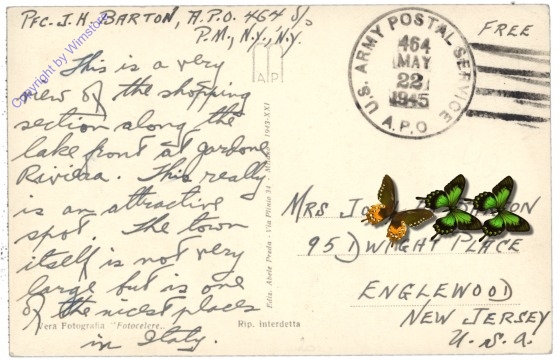 Pfc. J. H. BARTON, A.P.O. 464 %
P.M., N.Y., N.Y.
This is a very
view of the shopping
section along the
lake front at Gardone
Riviera. This really
is an attractive
spot. The town
itself is not very
large but is one
of the nicest places
in Italy.
Vera Fotografia "Fotocelere"
Rip. interdetta
Ediz. Abele Preda - Via Plinio 34 - Milano - 1943-XXI
A P
U.S. ARMY POSTAL SERVICE
464
MAY
22
1945
A.P.O
FREE
MRS
95 DWIGHT PLACE
ENGLEWOOD
NEW JERSEY
U.S.A.
Copyright by Wimstore